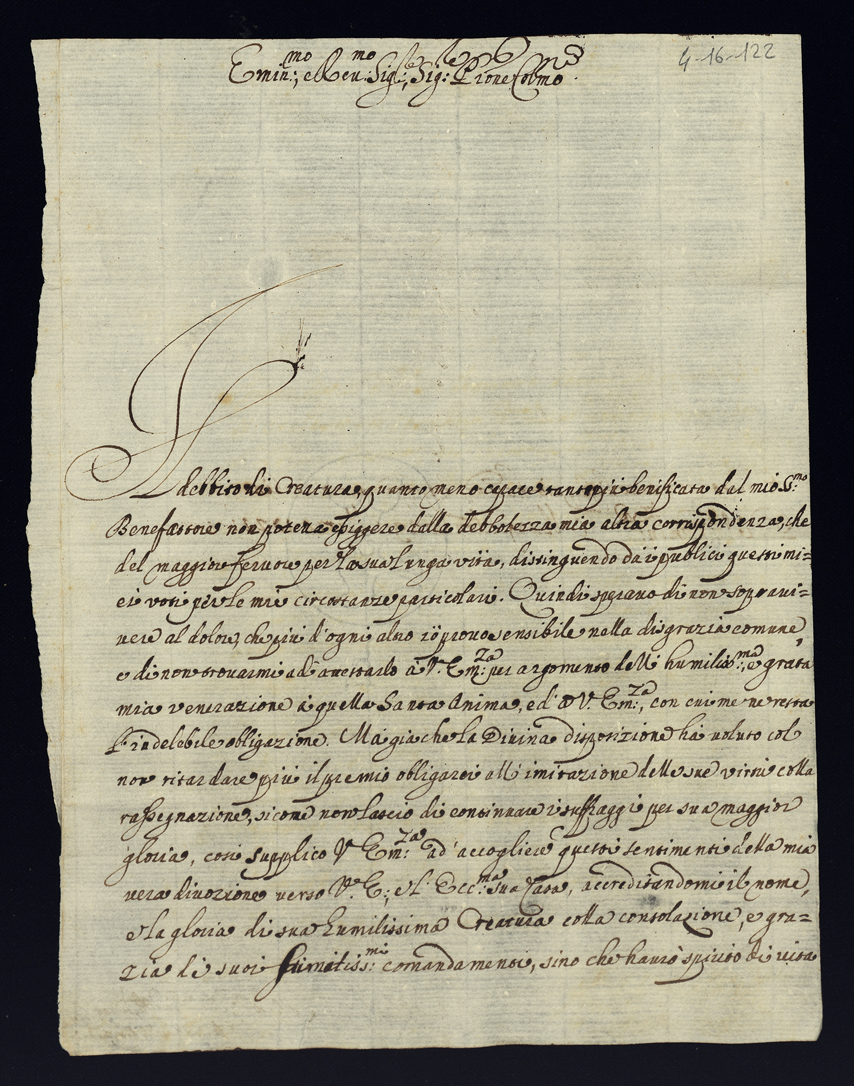 4-16-122
Emin:mo, e Reu:mo Sig:re, Sig:re P̄rone Colmo
Il debbito di Creatura, quanto meno capace tanto più benificata dal mio S:mo
Benefattore non poteua esiggere dalla debbolezza mia altra corrispondenza, che
del maggior feruore per la sua lunga vita, distinguendo da i publici questi mi=
ei voti per le mie circostanze particolari. Quindi sperauo di non soprauiu=
uere al dolore, che più d'ogni altro io prouo sensibile nella disgrazia comune,
e di non trouarmi ad attestarlo à V. Em:za per argomento dell' humiliss:ma, e grata
mia venerazione à quella Santa Anima, ed' à V. Em:za, con cui me ne resta
l'indelebile obligazione. Ma già che la Diuina disposizione hà voluto col
non ritardare più il premio obligarci all' imitazione delle sue virtù colla
rassegnazione, sicome non lascio di continuare i suffraggi per sua maggior
gloria, così supplico V. Em:za ad' accogliere questi sentimenti della mia
vera diuozione verso V. E:, e l' Ecc:ma sua Casa, accreditandomi il nome,
e la gloria di sua humilissima Creatura colla consolazione, e gra=
zia di suoi stimatiss:mi comandamenti, sino che haurò spirito di vita